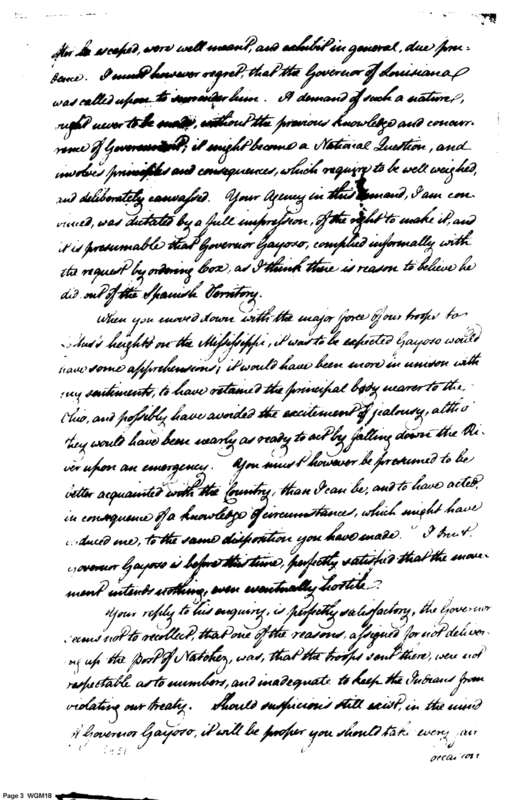 after he escaped, were well meant, and exhibit in general, due pru-
dence. I must however regret, that the Governor of Louisiana
was called upon to surrender him. A demand of such a nature,
ought never to be made, without the previous knowledge and concur-
rence of Government; it might become a National Question, and
involves principles and consequences, which require to be well weighed,
and deliberately canvassed. Your Agency in this demand, I am con-
vinced, was dictated by a full impression, of the right to make it, and
it is presumable that Governor Gayoso, complied informally with
the request by ordering Cox, as I think there is reason to believe he
did out of the Spanish Territory.
When you moved down with the major force of your troops to
heights on the Mississippi, it was to be expected Gayoso would
have some apprehensions; it would have been more in unison with
my sentiments, to have retained the principal body nearer to the
Ohio, and possibly have avoided the excitement of jealousy, altho'
they would have been nearly as ready to act by falling down the Ri-
ver upon an emergency. You must however be presumed to be
better acquainted with the Country, than I can be, and to have acted
in consequence of a knowledge of circumstances, which might have
induced me, to the same disposition you have made. I trust
Governor Gayoso is before this time, perfectly satisfied that the move-
ment intends nothing, even eventually hostile.
Your reply to his enquiry, is perfectly satisfactory, the Governor
seems not to recollect, that one of the reasons, assigned for not deliver-
ing up the Post of Natchez, was, that the troops sent there, were not
respectable as to numbers, and inadequate to keep the Indians from
violating our treaty. Should suspicion still exist, in the mind
of Governor Gayoso, it will be proper you should take every
occasion
Page 3 WGM18